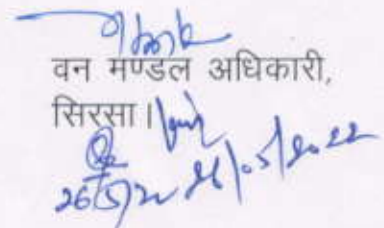 वन मण्डल अधिकारी,
सिरसा।
26/5/22 26/05/2022